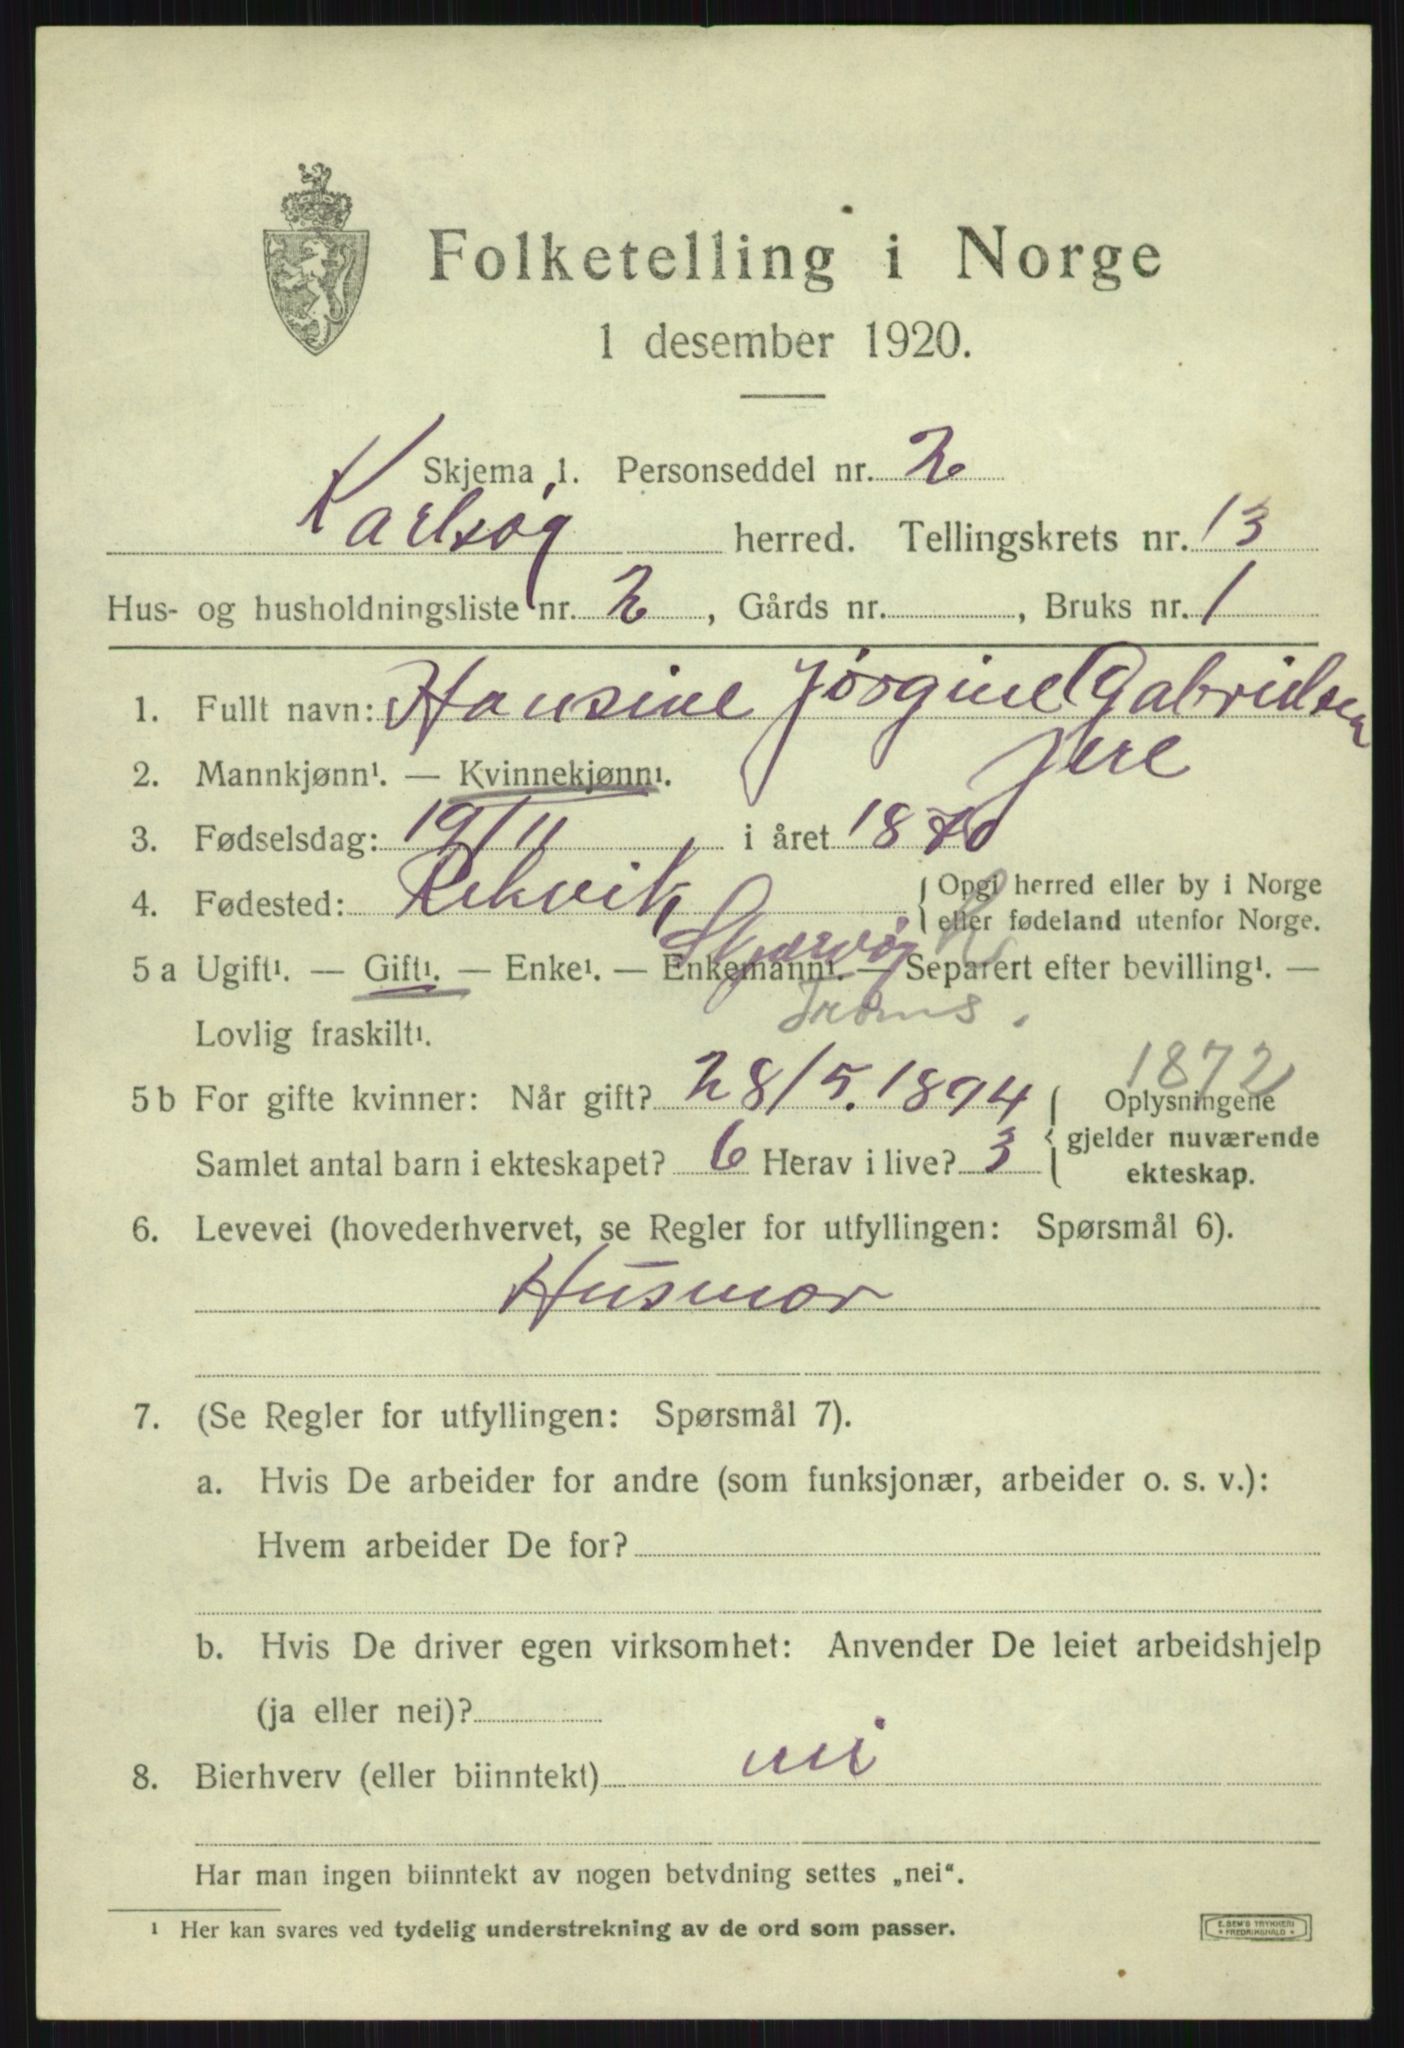 Folketelling i Norge
1 desember 1920.
Skjema 1. Personseddel nr. 2
Karlsøy herred. Tellingskrets nr. 13
Hus- og husholdningsliste nr. 2, Gårds nr. , Bruks nr. 1
1. Fullt navn: Hansine Jørgine Gabrielsen
2. Mannkjønn¹. — Kvinnekjønn¹.
3. Fødselsdag: 19/11 i året 1870
4. Fødested: Rekvik { Opgi herred eller by i Norge
eller fødeland utenfor Norge.
Skjervøy
5 a Ugift¹. — Gift¹. — Enke¹. — Enkemann¹. — Separert efter bevilling¹. —
Troms.
Lovlig fraskilt¹.
1872
5 b For gifte kvinner: Når gift? 28/5. 1894 { Oplysningene
gjelder nuværende
Samlet antal barn i ekteskapet? 6 Herav i live? 3
ekteskap.
6. Levevei (hovederhvervet, se Regler for utfyllingen: Spørsmål 6).
Husmor
7. (Se Regler for utfyllingen: Spørsmål 7).
a. Hvis De arbeider for andre (som funksjonær, arbeider o. s. v.):
Hvem arbeider De for?
b. Hvis De driver egen virksomhet: Anvender De leiet arbeidshjelp
(ja eller nei)?
8. Bierhverv (eller biinntekt) nei
Har man ingen biinntekt av nogen betydning settes „nei“.
¹ Her kan svares ved tydelig understrekning av de ord som passer.
E. SEM'S TRYKKERI
* FREDRIKSHALD *